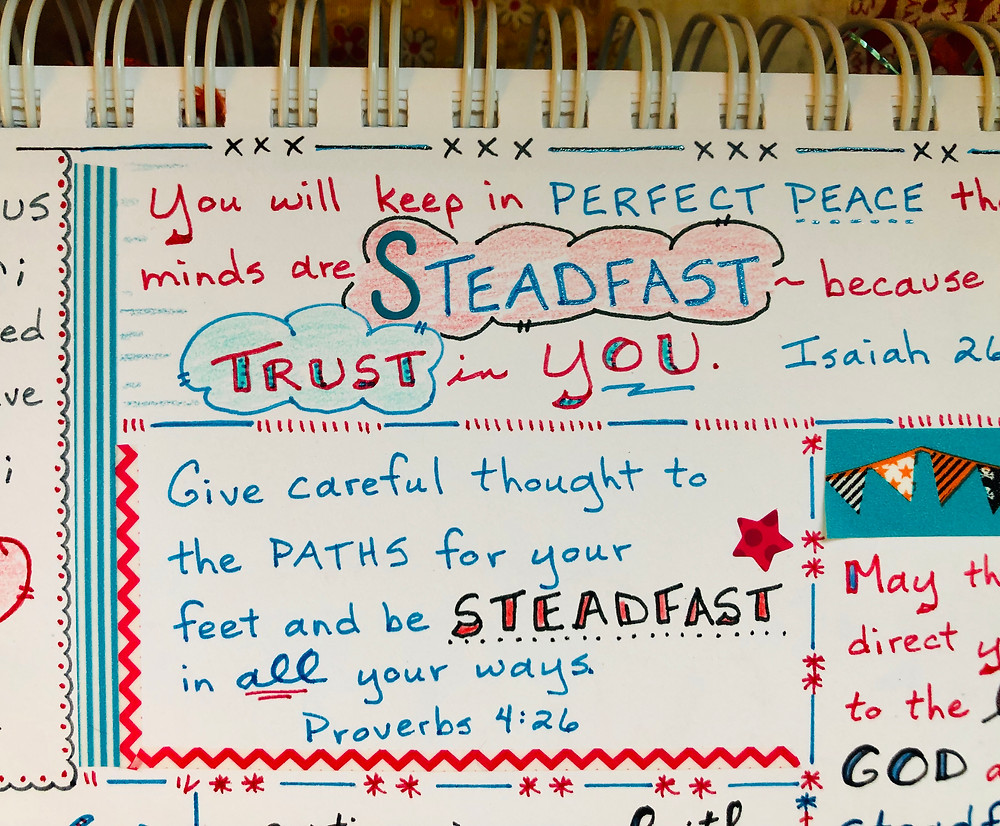 You will keep in PERFECT PEACE
minds are STEADFAST ~ because
TRUST in YOU. Isaiah 26
Give careful thought to
the PATHS for your
feet and be STEADFAST
in all your ways.
Proverbs 4:26
May
direct
to the
GOD